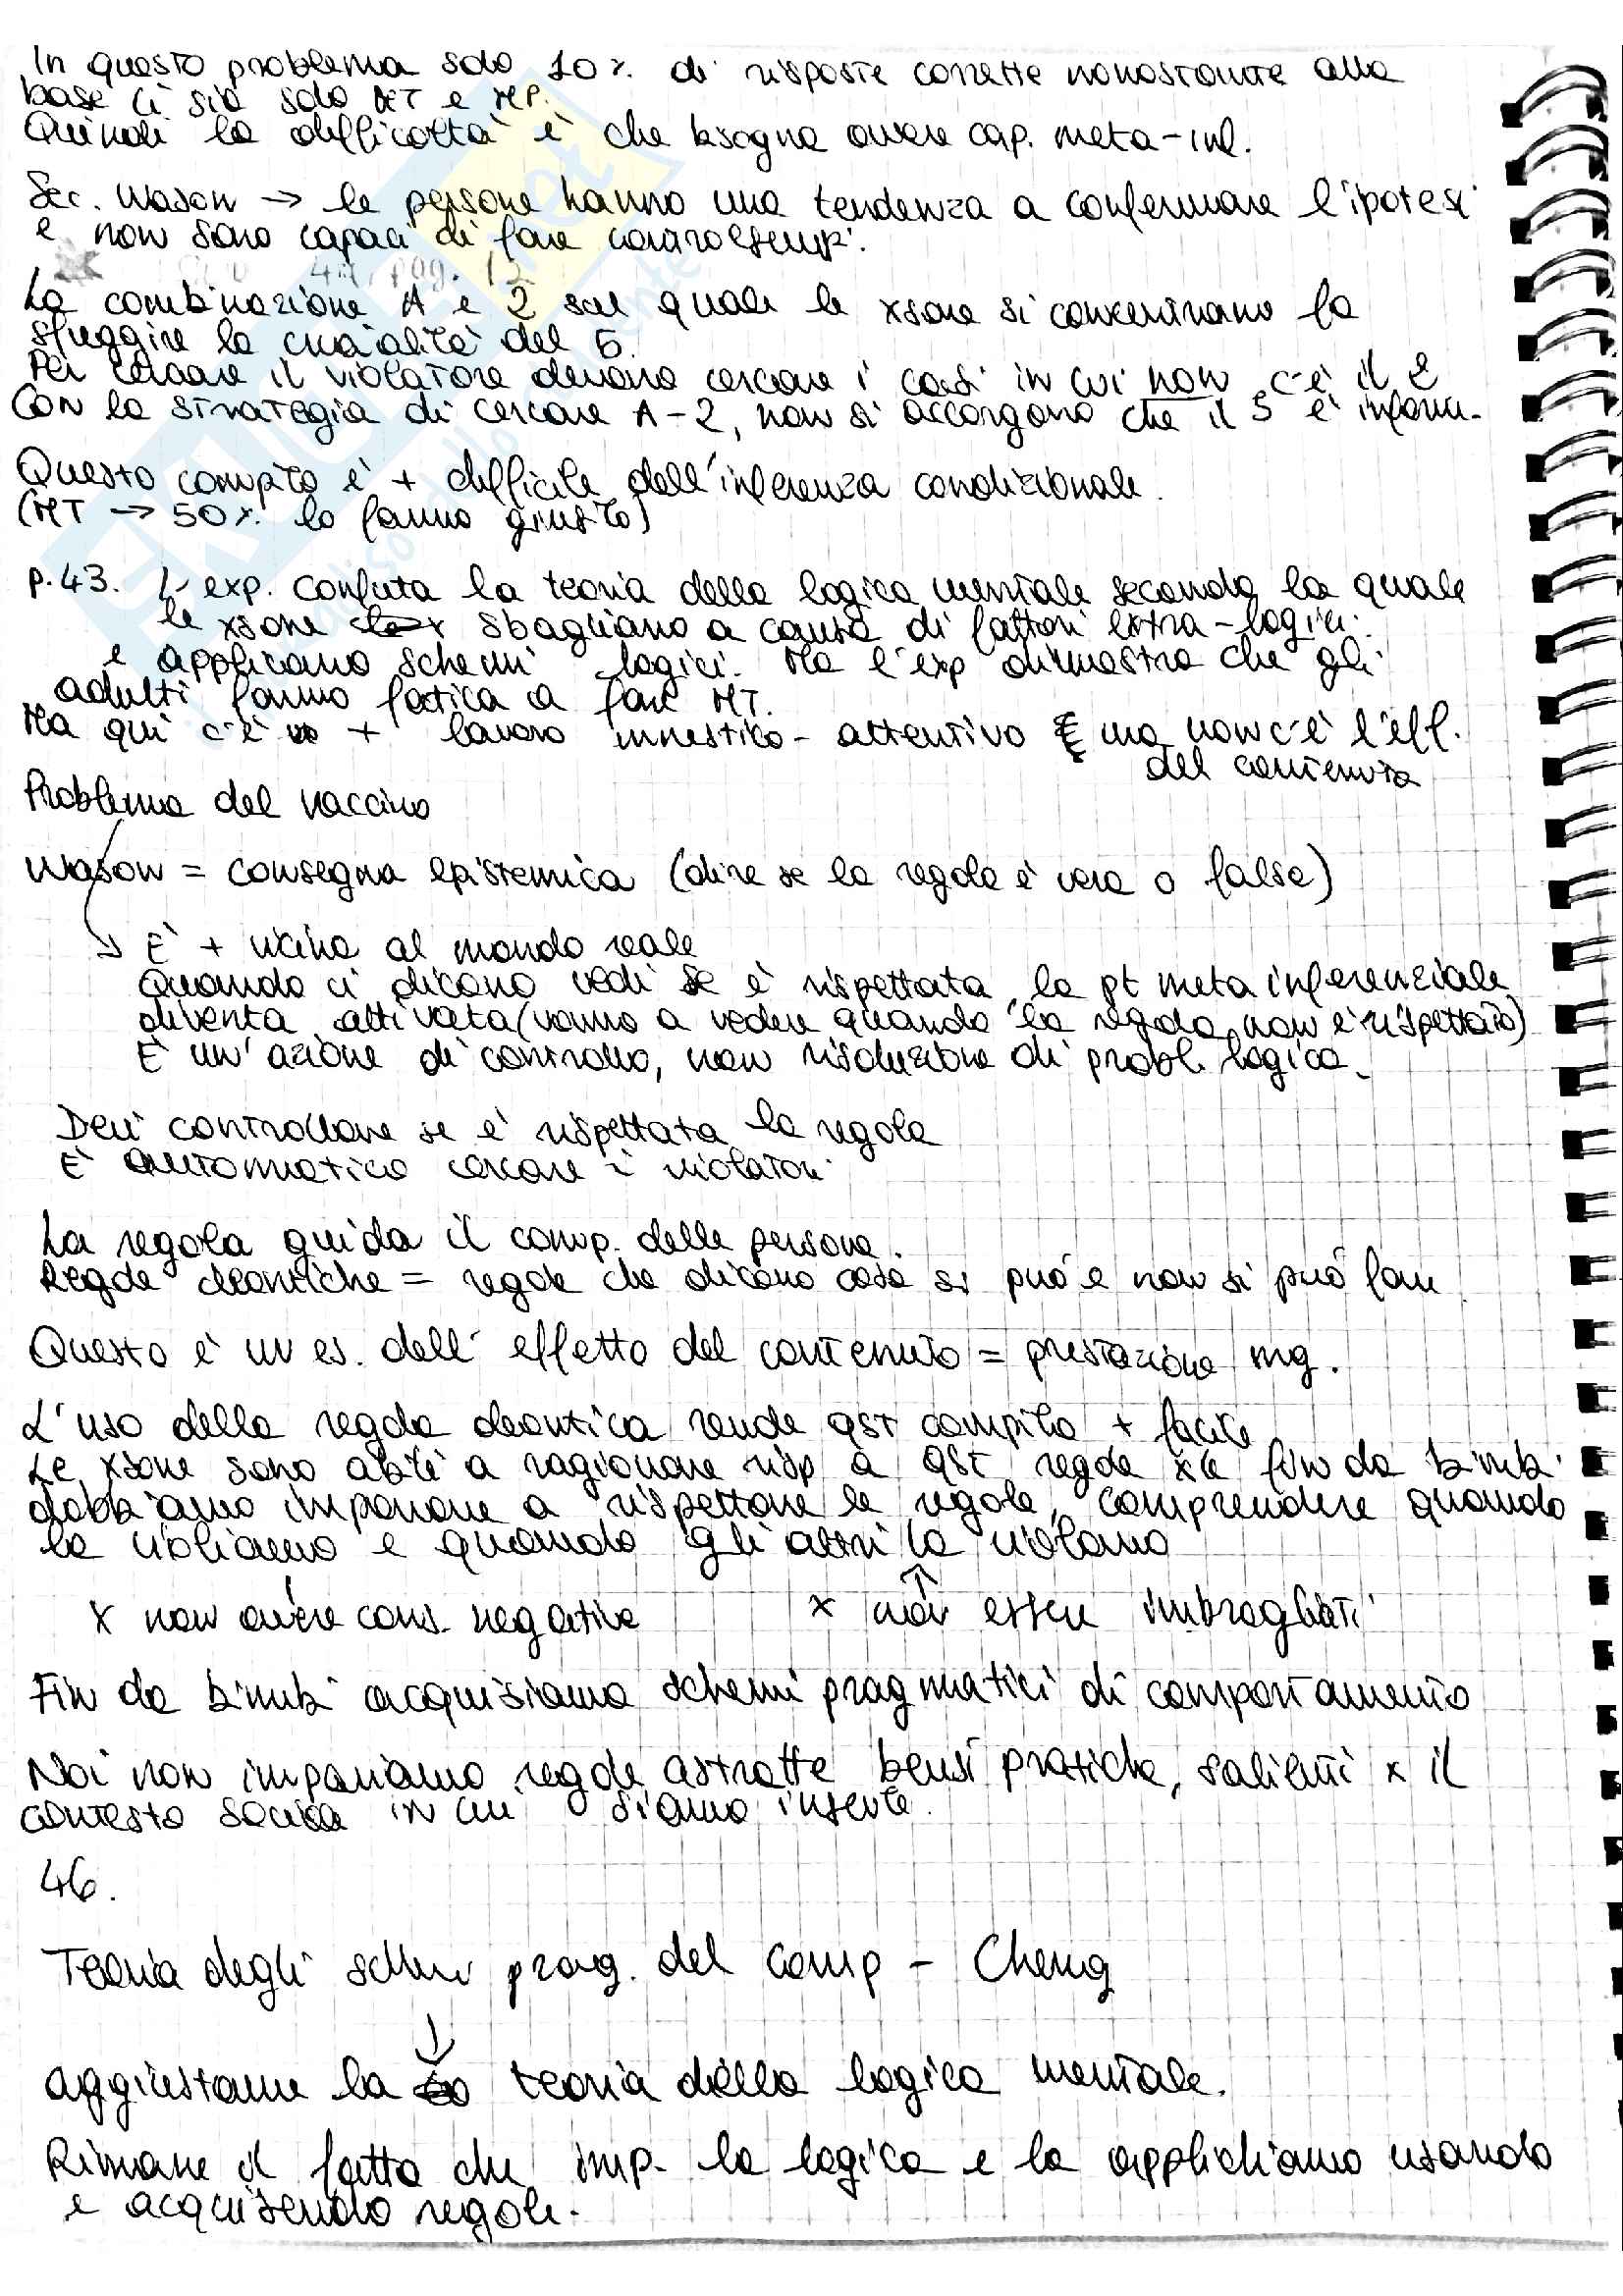 In questo problema solo 10% di risposte corrette nonostante alla
base ci sia solo MT e MP.
Quindi la difficoltà è che bisogna avere cap. meta-inf.
Sec. Wason → le persone hanno una tendenza a confermare l'ipotesi
e non sono capaci di fare controesemp.
La combinazione A e 2 sul quale le xsone si concentrano fa
sfuggire la crucialità del 5.
Per cercare il violatore devono cercare i casi in cui non c'è il 2
Con la strategia di cercare A-2, non si accorgono che il 5 è inform.
Questo compito è + difficile dell'inferenza condizionale.
(MT → 50% lo fanno giusto)
p.43. L'exp. confuta la teoria della logica mentale secondo la quale
le xsone sbagliano a causa di fattori extra-logici.
e applicano schemi logici. Ma l'exp dimostra che gli
adulti fanno fatica a fare MT.
Ma qui c'è + lavoro mnestico-attentivo ma non c'è l'eff.
del contenuto
Problema del vaccino
Wason = consegna epistemica (dire se la regola è vera o falsa)
↳ È + vicino al mondo reale
Quando ci dicono vedi se è rispettata, la pt meta inferenziale
diventa attivata (vanno a vedere quando la regola non è rispettata)
È un'azione di controllo, non risoluzione di probl. logico.
Devi controllare se è rispettata la regola
È automatico cercare i violatori
La regola guida il comp. delle persone.
Regole deontiche = regole che dicono cosa si può e non si può fare
Questo è un es. dell'effetto del contenuto = prestazione mg.
L'uso della regola deontica rende qst compito + facile
Le xsone sono abili a ragionare risp a qst regole xk fin da bimbi
dobbiamo imparare a rispettare le regole, comprendere quando
le violiamo e quando gli altri la violano
x non avere cons. negative x non essere imbrogliati
Fin da bimbi acquisiamo schemi pragmatici di comportamento
Noi non impariamo regole astratte bensì pratiche, salienti x il
contesto sociale in cui siamo inserite.
46.
Teoria degli schemi prag. del comp - Cheng
↓
aggiustame la teoria della logica mentale.
Rimane il fatto che imp. la logica e la applichiamo usando
e acquisendo regole.